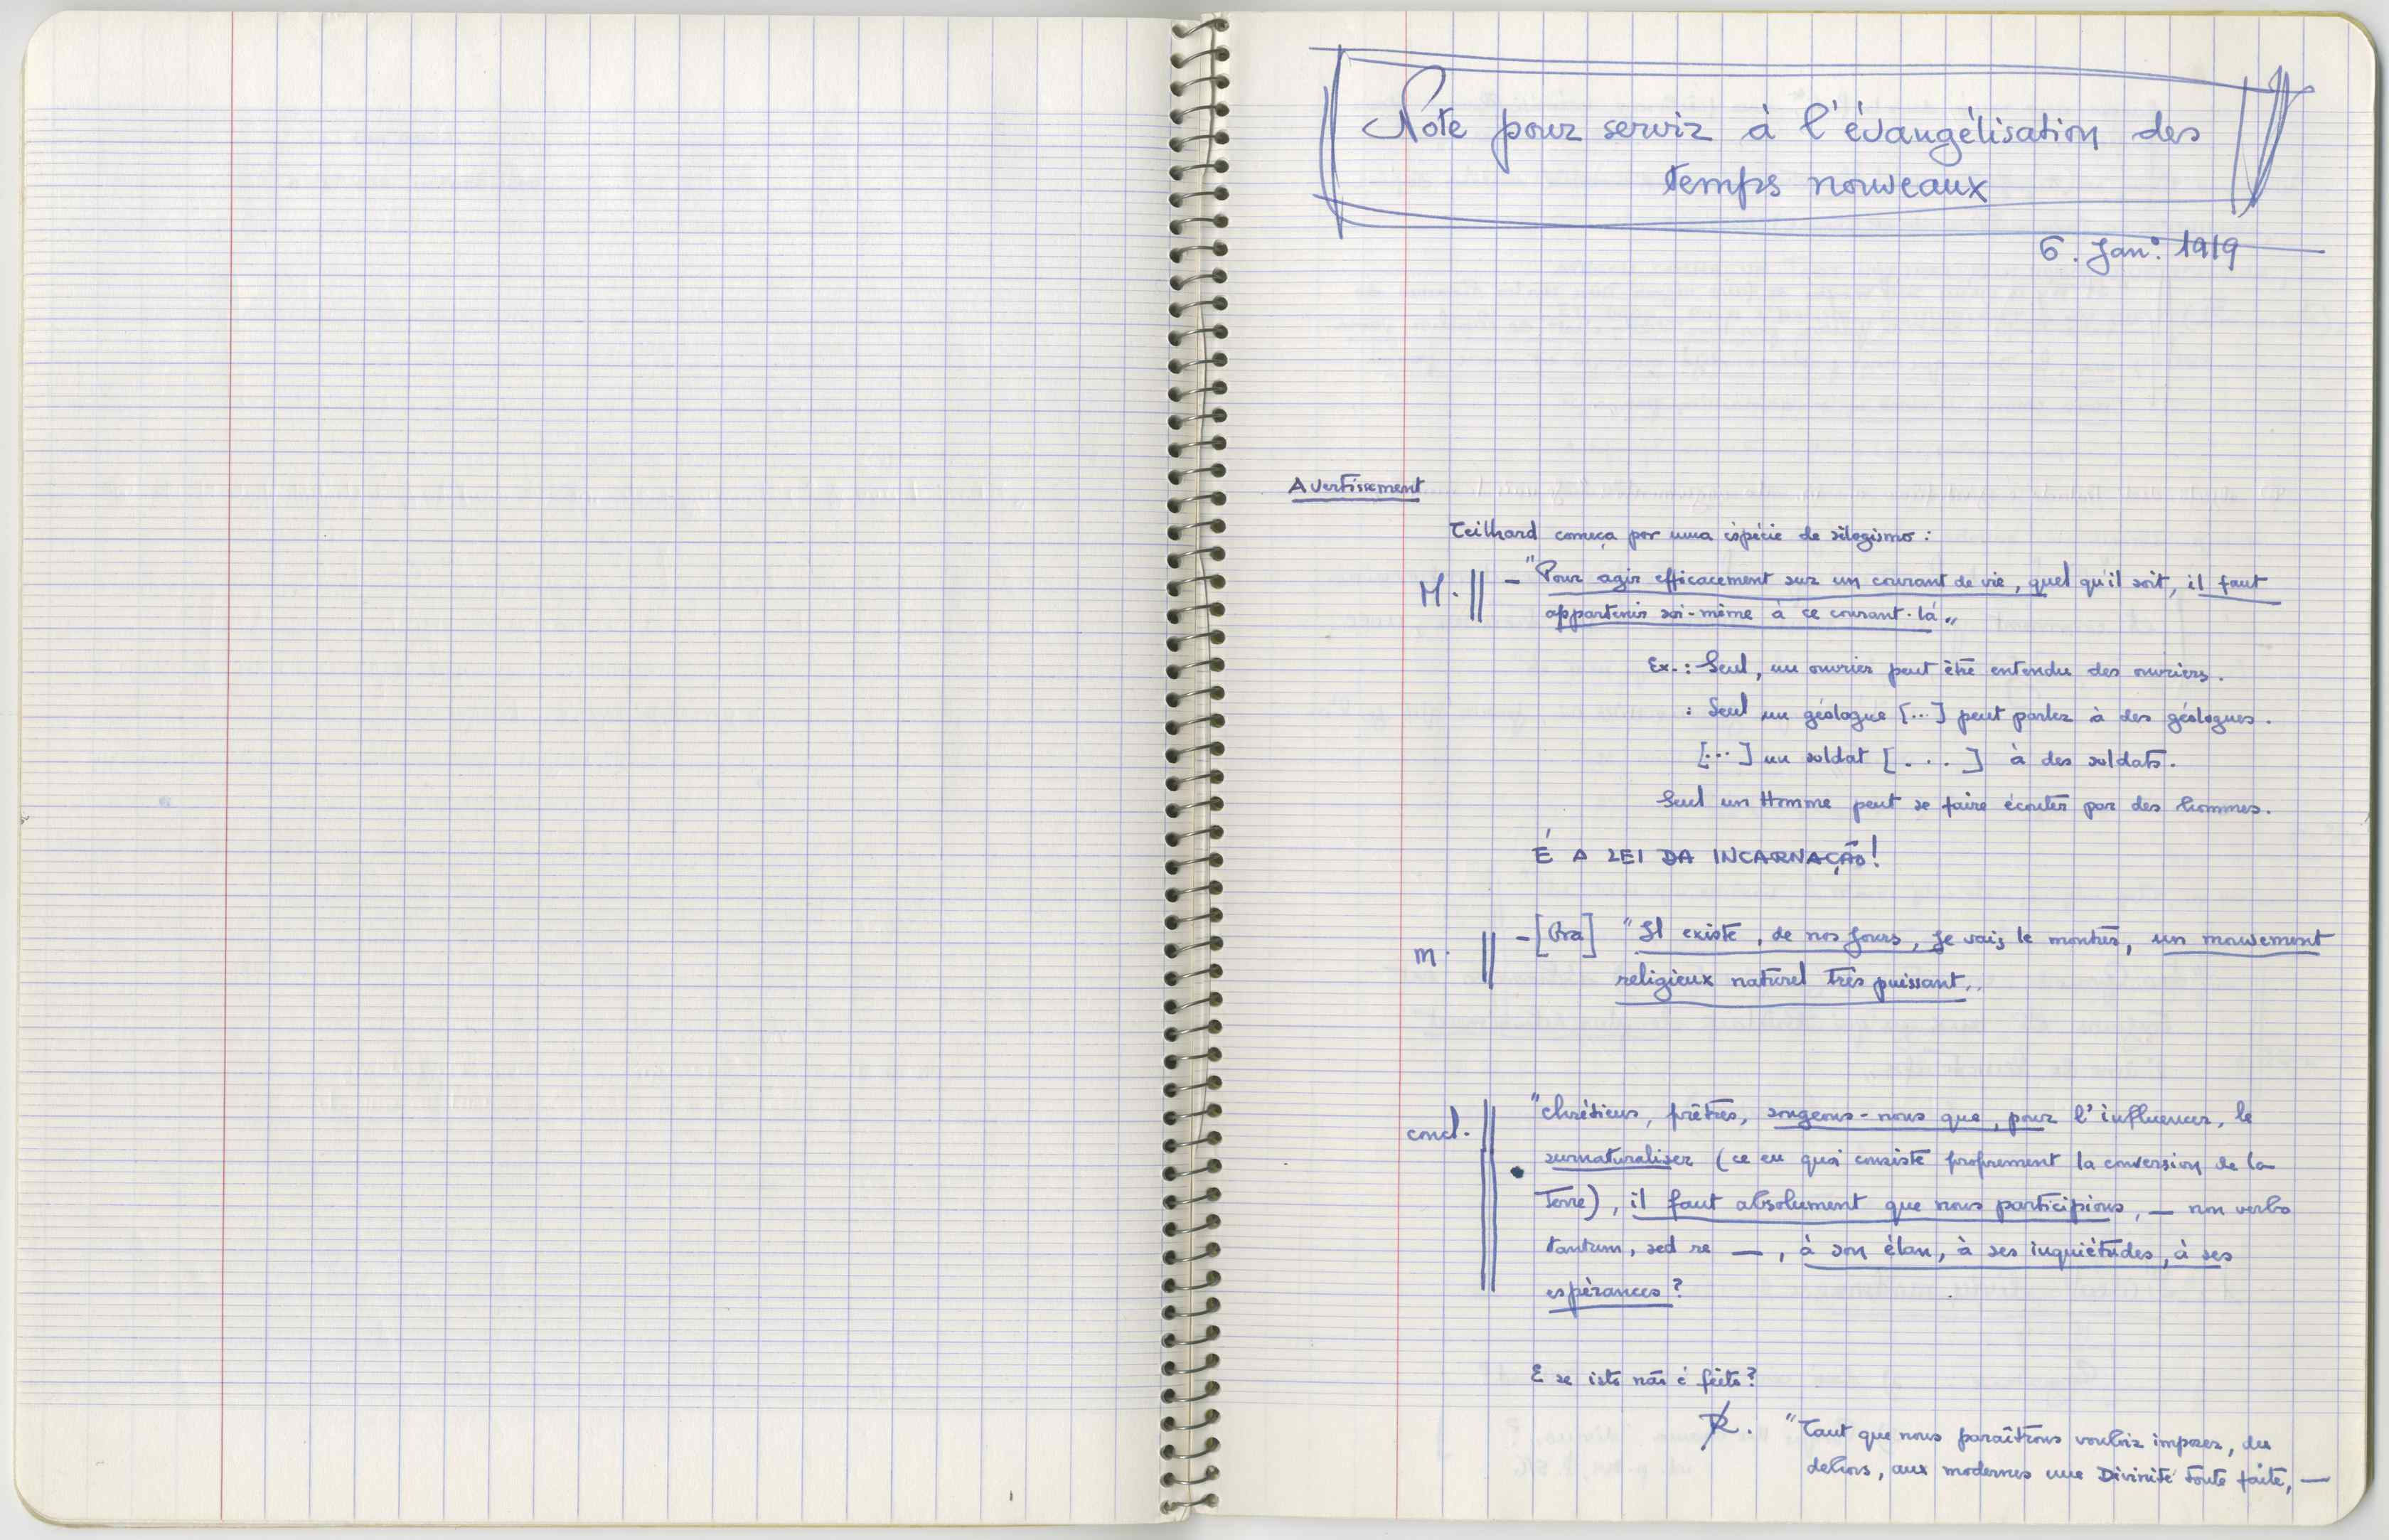 Note pour servir à l'évangélisation des
temps nouveaux
6. Jan.º 1919
Avertissement
Teilhard começa por uma espécie de silogismo :
M. || — "Pour agir efficacement sur un courant de vie, quel qu'il soit, il faut
appartenir soi-même à ce courant-là"
Ex. : Seul, un ouvrier peut être entendu des ouvriers.
: Seul un géologue [...] peut parler à des géologues.
[...] un soldat [...] à des soldats.
Seul un Homme peut se faire écouter par des hommes.
É A LEI DA INCARNAÇÃO!
m. || — [Ora] "Il existe, de nos jours, je vais le montrer, un mouvement
religieux naturel très puissant"
concl. || "chrétiens, prêtres, songeons-nous que, pour l'influencer, le
surnaturaliser (ce en quoi consiste proprement la conversion de la
Terre), il faut absolument que nous participions, — non verbo
tantum, sed re —, à son élan, à ses inquiétudes, à ses
espérances ?
E se isto não é feito?
R. "Tant que nous paraîtrons vouloir imposer, du
dehors, aux modernes une Divinité toute faite, —